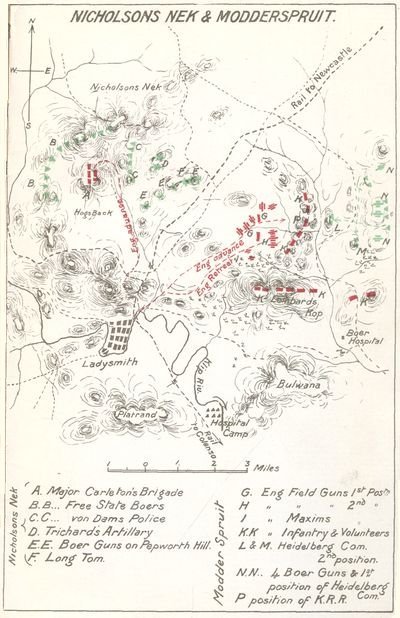 NICHOLSONS NEK & MODDERSPRUIT.
N
W
E
S
Nicholsons Nek
Rail to Newcastle
B
B
B
C
C
D
E
E
F
A
Hogs Back
Eng advance
G
H
I
K
K
L
M
N
N
N
P
Eng advance
Eng Retreat
K
K
Lombards Kop
Boer
Hospital
Ladysmith
Klip Riv
Bulwana
Platrand
Hospital
Camp
Rail
to Colenso
1 0 1 2 3 Miles
Nicholsons Nek
A. Major Carleton's Brigade
B.B... Free State Boers
C.C... von Dams Police
D. Trichard's Artillary
E.E. Boer Guns on Pepworth Hill.
F. Long Tom.
Modder Spruit
G. Eng Field Guns 1st Postn
H " " " 2nd "
I " Maxims
KK " Infantry & Volunteers
L & M. Heidelberg Com.
2nd position.
N.N.. 4 Boer Guns & 1st
position of Heidelberg
Com.
P position of K.R.R.